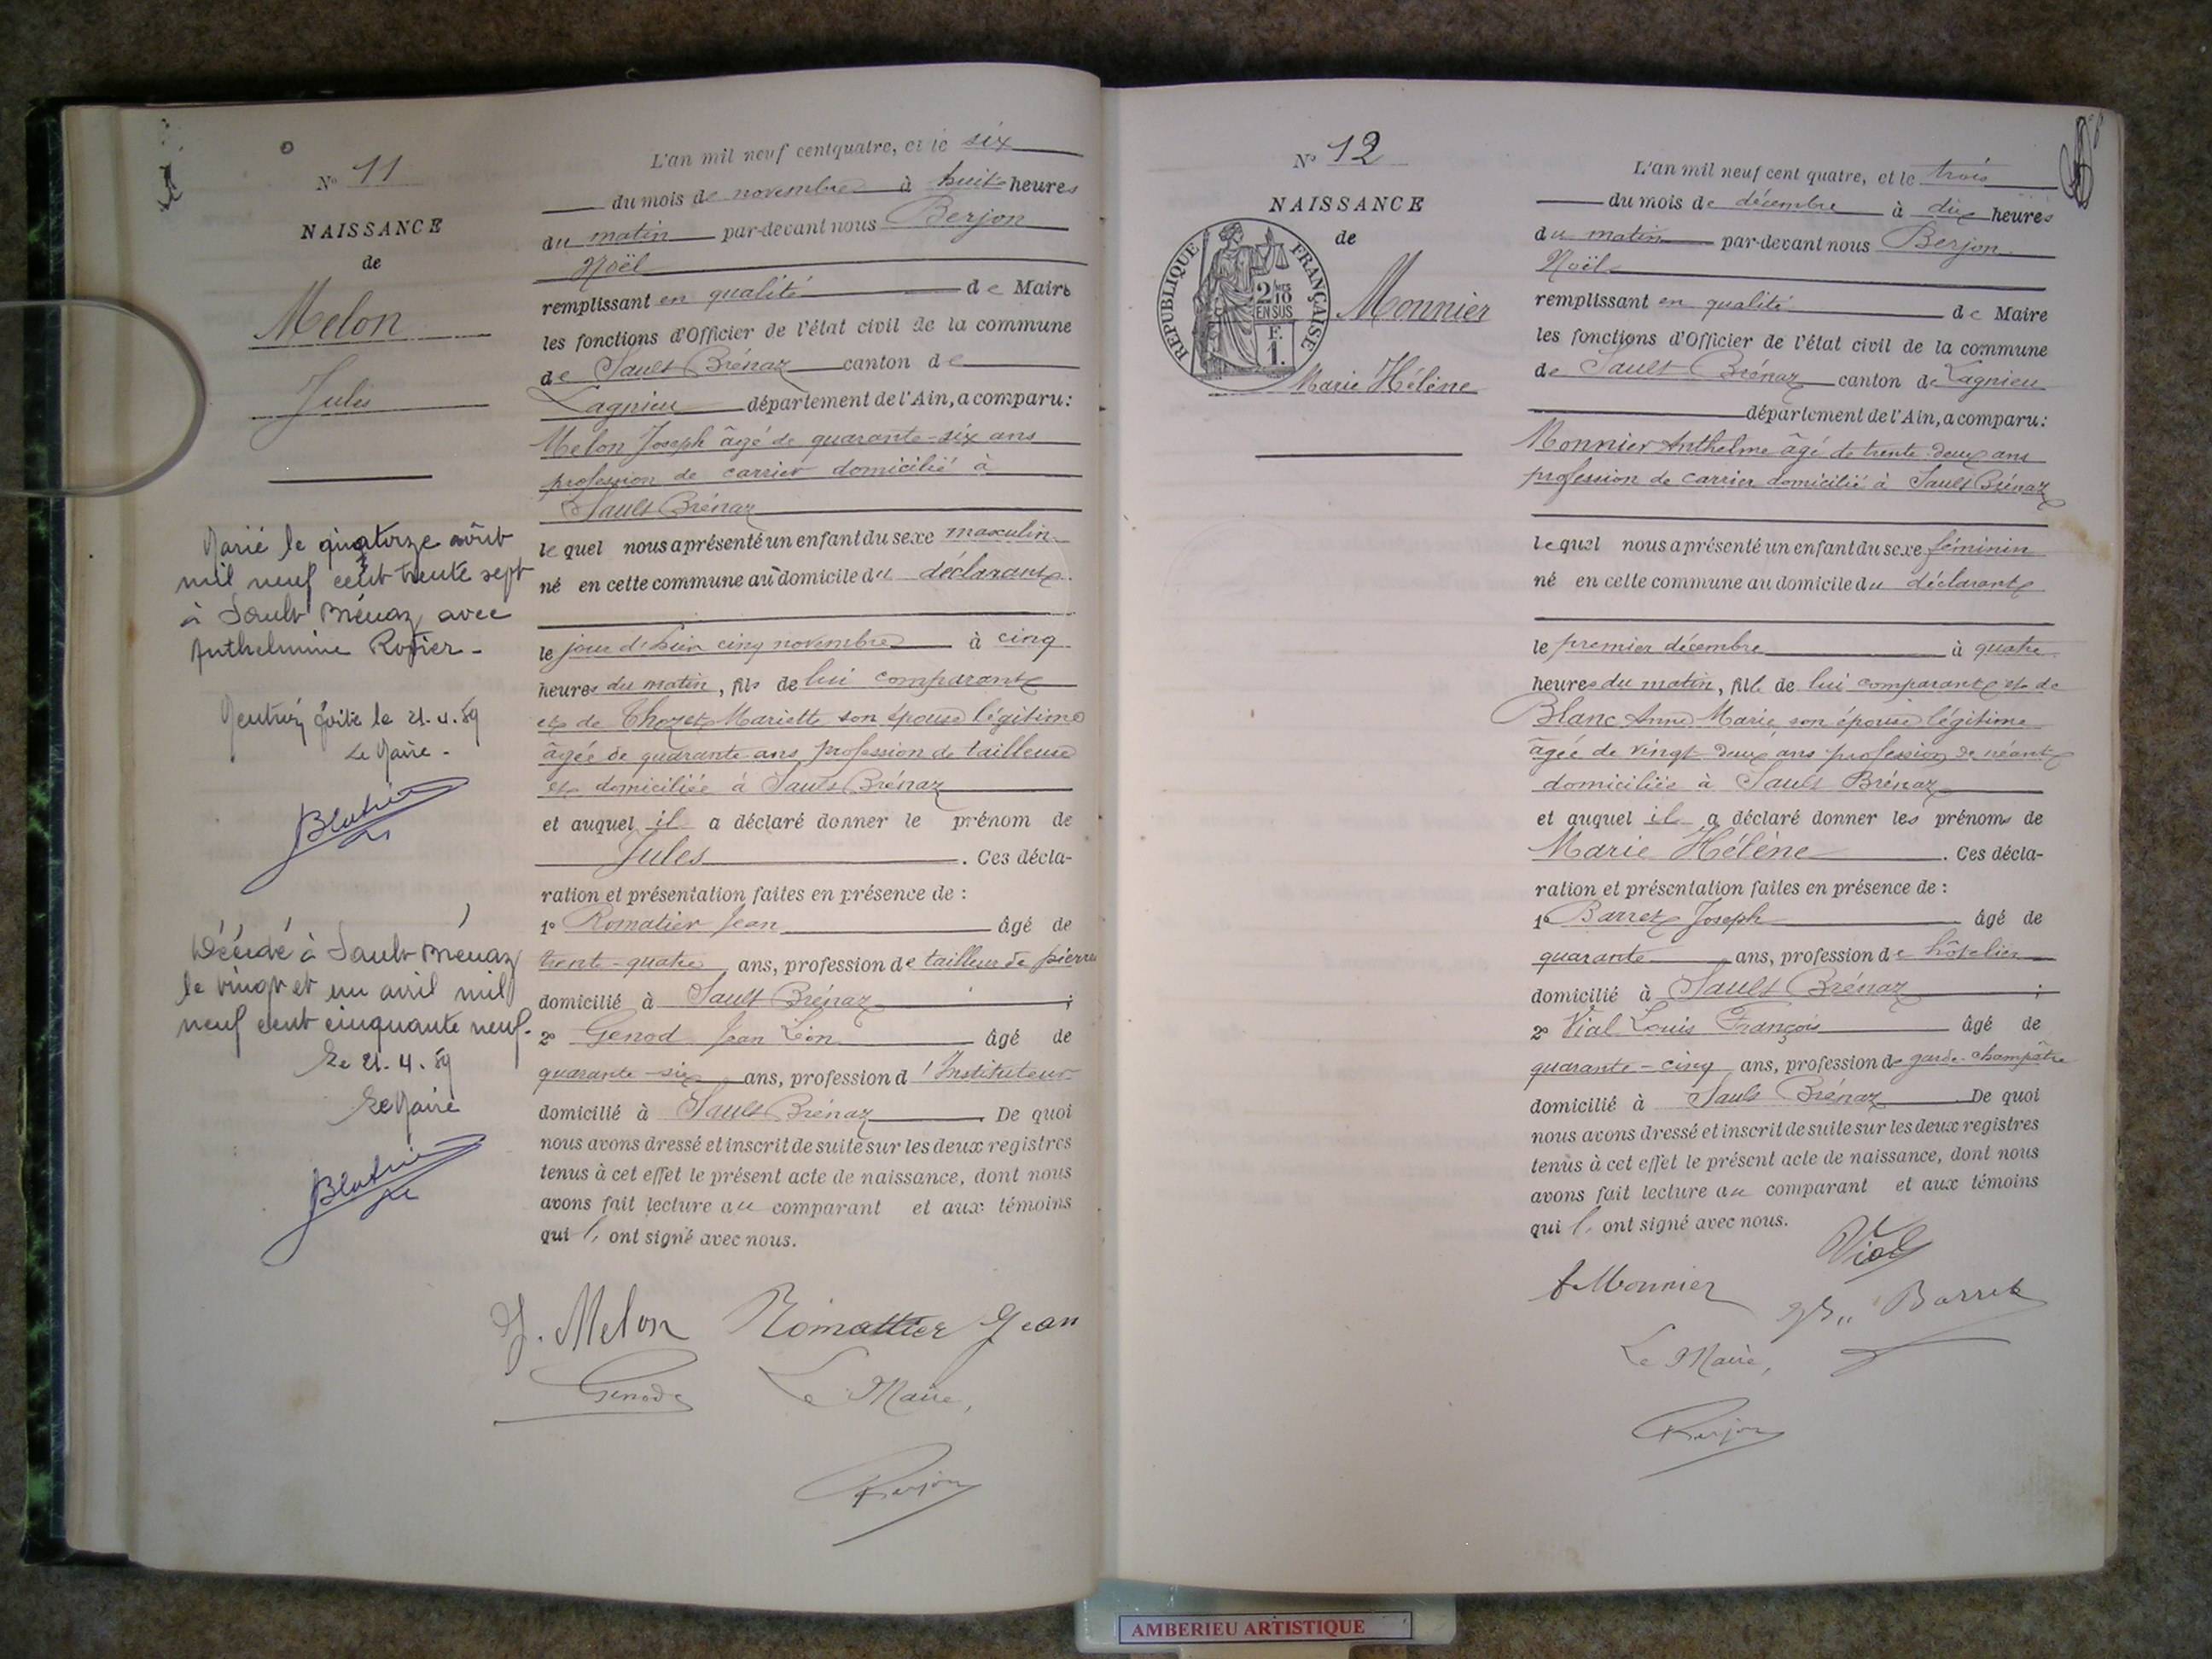 N° 11
NAISSANCE
de
Melon
Jules
Marié le quatorze août
mil neuf cent trente sept
à Sault Brénaz avec
Anthelmine Rozier -
Mention faite le 21.4.59
Le Maire -
Décédé à Sault-Brénaz
le vingt et un avril mil
neuf cent cinquante neuf.
Le 21.4.59
Le Maire
L'an mil neuf cent quatre, et le six
du mois de novembre à huit heures
du matin par-devant nous Berjon
Noël
remplissant en qualité de Maire
les fonctions d'Officier de l'état civil de la commune
de Sault Brénaz canton de
Lagnieu département de l'Ain, a comparu:
Melon Joseph âgé de quarante-six ans
profession de carrier domicilié à
Sault Brénaz
lequel nous a présenté un enfant du sexe masculin
né en cette commune au domicile du déclarant
le jour d'hier cinq novembre à cinq
heures du matin, fils de lui comparant
et de Thozet Mariette son épouse légitime
âgée de quarante ans profession de tailleuse
et domiciliée à Sault Brénaz
et auquel il a déclaré donner le prénom de
Jules. Ces décla-
ration et présentation faites en présence de :
1° Romatier Jean âgé de
trent-quatre ans, profession de tailleur de pierres
domicilié à Sault Brénaz ;
2° Genod Jean Léon âgé de
quarante-six ans, profession d'Instituteur
domicilié à Sault Brénaz. De quoi
nous avons dressé et inscrit de suite sur les deux registres
tenus à cet effet le présent acte de naissance, dont nous
avons fait lecture au comparant et aux témoins
qui l'ont signé avec nous.
J. Melon Romattier Jean
Genod Le Maire,
Berjon
N° 12
NAISSANCE
de
RÉPUBLIQUE FRANÇAISE
2/10 EN SUS
F. 1.
Monnier
Marie Hélène
L'an mil neuf cent quatre, et le trois
du mois de décembre à dix heures
du matin par-devant nous Berjon
Noël
remplissant en qualité de Maire
les fonctions d'Officier de l'état civil de la commune
de Sault Brénaz canton de Lagnieu
département de l'Ain, a comparu:
Monnier Anthelme âgé de trente-deux ans
profession de carrier domicilié à Sault Brénaz
lequel nous a présenté un enfant du sexe féminin
né en cette commune au domicile du déclarant
le premier décembre à quatre
heures du matin, fille de lui comparant et de
Blanc Anne Marie, son épouse légitime
âgée de vingt-deux ans profession de néant
domiciliée à Sault Brénaz
et auquel il a déclaré donner les prénoms de
Marie Hélène. Ces décla-
ration et présentation faites en présence de :
1° Barret Joseph âgé de
quarante ans, profession de hôtelier
domicilié à Sault Brénaz ;
2° Vial Louis François âgé de
quarante-cinq ans, profession de garde-champêtre
domicilié à Sault Brénaz. De quoi
nous avons dressé et inscrit de suite sur les deux registres
tenus à cet effet le présent acte de naissance, dont nous
avons fait lecture au comparant et aux témoins
qui l'ont signé avec nous.
Vial
A Monnier
Barret
Le Maire,
Berjon
AMBERIEU ARTISTIQUE